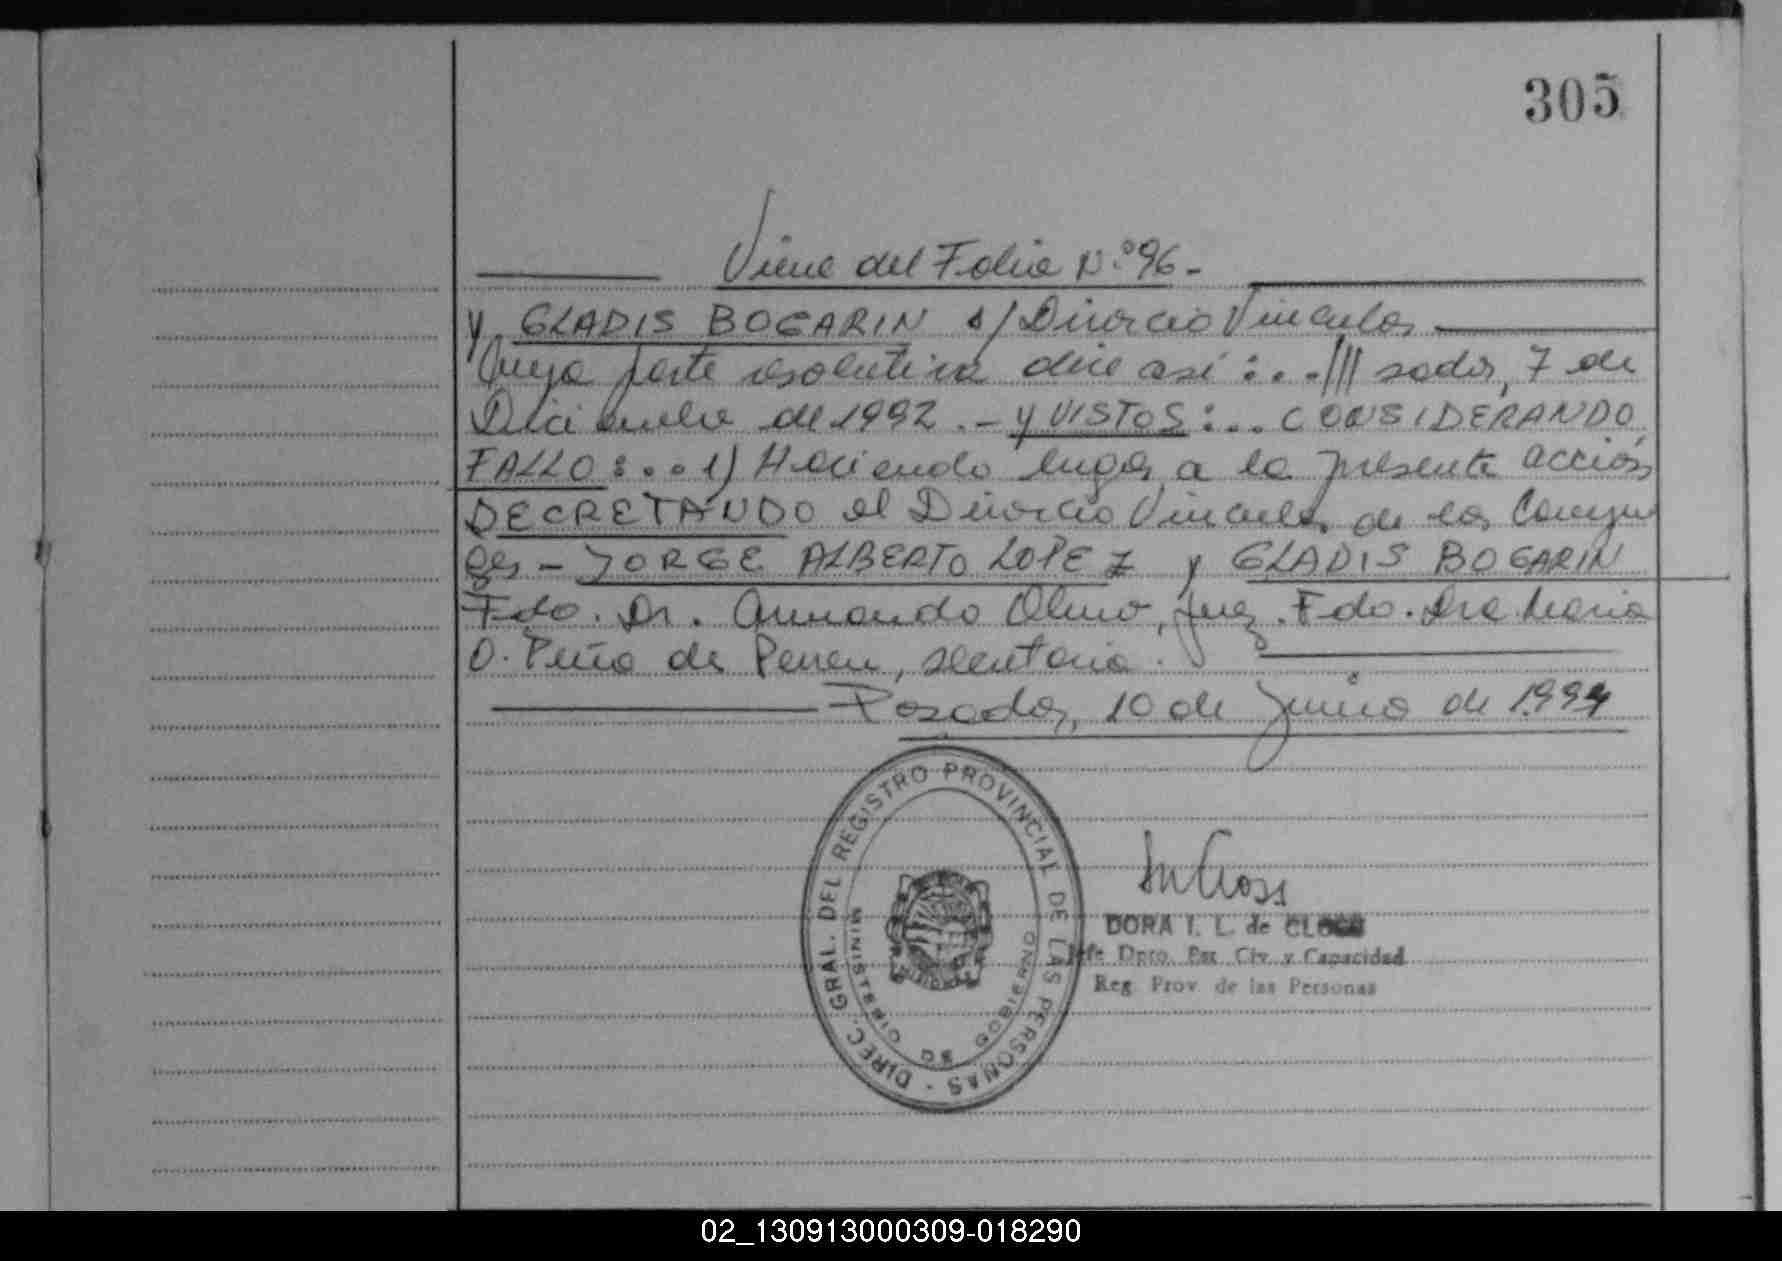 305
Viene del Folio N.º 96.-
y GLADIS BOGARIN s/ Divorcio Vincular
Cuya parte resolutiva dice así:...///sadas, 7 de
Diciembre de 1992.- y VISTOS:... CONSIDERANDO,
FALLO:..1) Haciendo lugar a la presente acción
DECRETANDO el Divorcio Vincular de los Conyu
ges - JORGE ALBERTO LOPEZ y GLADIS BOGARIN
Fdo. Dr. Armando Olmo, Juez. Fdo. Dra Maria
O. Peña de, secretaria.
Posadas, 10 de Junio de 1994
DIREC. GRAL. DEL REGISTRO PROVINCIAL DE LAS PERSONAS -
MINISTERIO DE GOBIERNO
DORA I. L. de
Jefe Dpto. Est. Civ. y Capacidad
Reg. Prov. de las Personas
02_130913000309-018290